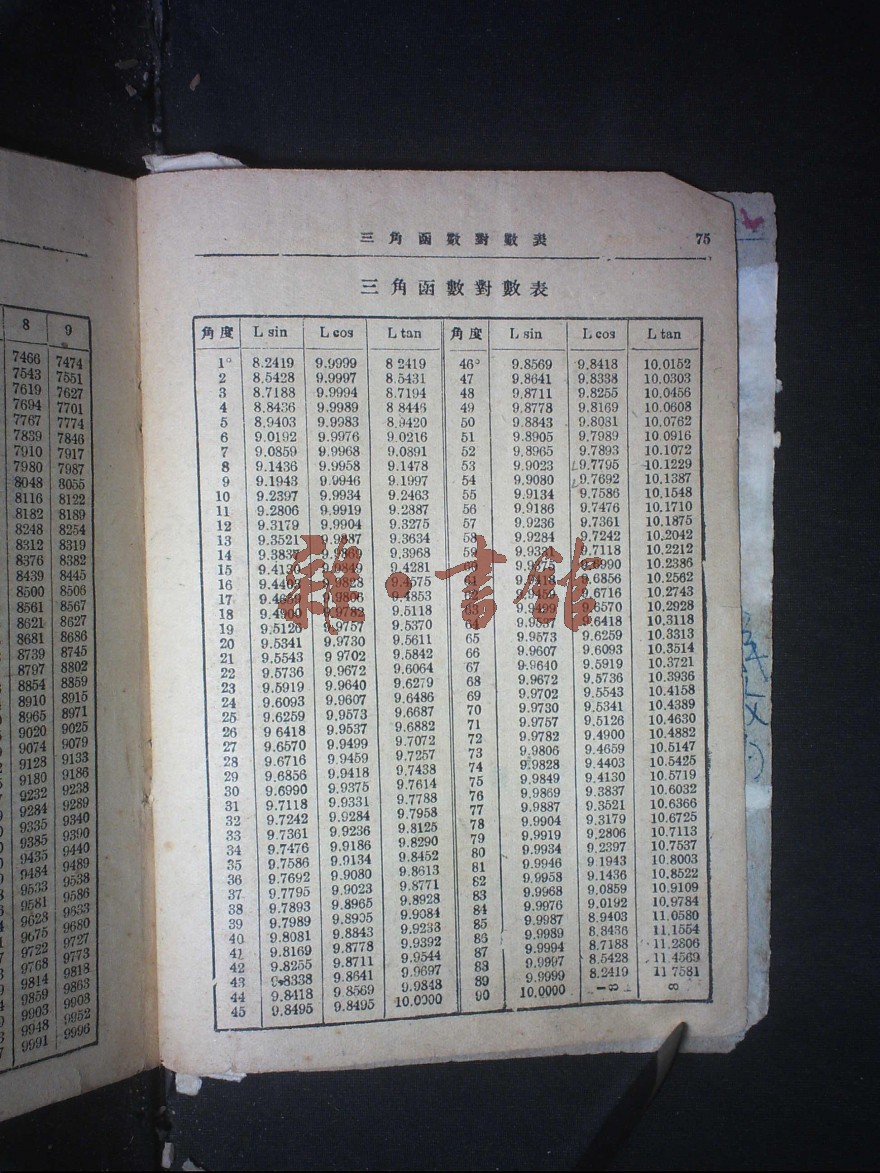 8 9
7466 7474
7543 7551
7619 7627
7694 7701
7767 7774
7839 7846
7910 7917
7980 7987
8048 8055
8116 8122
8182 8189
8248 8254
8312 8319
8376 8382
8439 8445
8500 8506
8561 8567
8621 8627
8681 8686
8739 8745
8797 8802
8854 8859
8910 8915
8965 8971
9020 9025
9074 9079
9128 9133
9180 9186
9232 9238
9284 9289
9335 9340
9385 9390
9435 9440
9484 9489
9533 9538
9581 9586
9628 9633
9675 9680
9722 9727
9768 9773
9814 9818
9859 9863
9903 9908
9948 9952
9991 9996
三角函數對數表 75
三角函數對數表
角度 L sin L cos L tan 角度 L sin L cos L tan
1° 8.2419 9.9999 8 2419 46° 9.8569 9.8418 10.0152
2 8.5428 9.9997 8.5431 47 9.8641 9.8338 10.0303
3 8.7188 9.9994 8.7194 48 9.8711 9.8255 10.0456
4 8.8436 9.9989 8.8446 49 9.8778 9.8169 10.0608
5 8.9403 9.9983 8.9420 50 9.8843 9.8081 10.0762
6 9.0192 9.9976 9.0216 51 9.8905 9.7989 10.0916
7 9.0859 9.9968 9.0891 52 9.8965 9.7893 10.1072
8 9.1436 9.9958 9.1478 53 9.9023 9.7795 10.1229
9 9.1943 9.9946 9.1997 54 9.9080 9.7692 10.1387
10 9.2397 9.9934 9.2463 55 9.9134 9.7586 10.1548
11 9.2806 9.9919 9.2887 56 9.9186 9.7476 10.1710
12 9.3179 9.9904 9.3275 57 9.9236 9.7361 10.1875
13 9.3521 9.9887 9.3634 58 9.9284 9.7242 10.2042
14 9.3837 9.9869 9.3968 59 9.9331 9.7118 10.2212
15 9.4130 9.9849 9.4281 60 9.9375 9.6990 10.2386
16 9.4403 9.9828 9.4575 61 9.9418 9.6856 10.2562
17 9.4659 9.9806 9.4853 62 9.9459 9.6716 10.2743
18 9.4900 9.9782 9.5118 63 9.9499 9.6570 10.2928
19 9.5126 9.9757 9.5370 64 9.9537 9.6418 10.3118
20 9.5341 9.9730 9.5611 65 9.9573 9.6259 10.3313
21 9.5543 9 9702 9.5842 66 9.9607 9.6093 10.3514
22 9.5736 9.9672 9.6064 67 9.9640 9.5919 10.3721
23 9.5919 9.9640 9.6279 68 9.9672 9.5736 10.3936
24 9.6093 9.9607 9.6486 69 9.9702 9.5543 10.4158
25 9.6259 9.9573 9.6687 70 9.9730 9.5341 10.4389
26 9 6418 9.9537 9.6882 71 9.9757 9.5126 10.4630
27 9.6570 9.9499 9.7072 72 9.9782 9.4900 10.4882
28 9.6716 9.9459 9.7257 73 9.9806 9.4659 10.5147
29 9.6856 9.9418 9.7438 74 9.9828 9.4403 10.5425
30 9.6990 9.9375 9.7614 75 9.9849 9.4130 10.5719
31 9.7118 9.9331 9.7788 76 9.9869 9.3837 10.6032
32 9.7242 9.9284 9.7958 77 9.9887 9.3521 10.6366
33 9.7361 9.9236 9.8125 78 9.9904 9.3179 10.6725
34 9.7476 9.9186 9.8290 79 9.9919 9.2806 10.7113
35 9.7586 9.9134 9.8452 80 9.9934 9.2397 10.7537
36 9.7692 9.9080 9.8613 81 9.9946 9.1943 10.8003
37 9.7795 9.9023 9.8771 82 9.9958 9.1436 10.8522
38 9.7893 9.8965 9.8928 83 9.9968 9.0859 10.9109
39 9.7989 9.8905 9.9084 84 9.9976 9.0192 10.9784
40 9.8081 9.8843 9.9238 85 9.9987 8.9403 11.0580
41 9.8169 9.8778 9.9392 86 9.9989 8.8436 11.1554
42 9.8255 9.8711 9.9544 87 9.9994 8.7188 11.2806
43 9.8338 9.8641 9.9697 88 9.9997 8.5428 11.4569
44 9.8418 9.8569 9.9848 89 9.9999 8.2419 11 7581
45 9.8495 9.8495 10.0000 90 10.0000 −∞ ∞